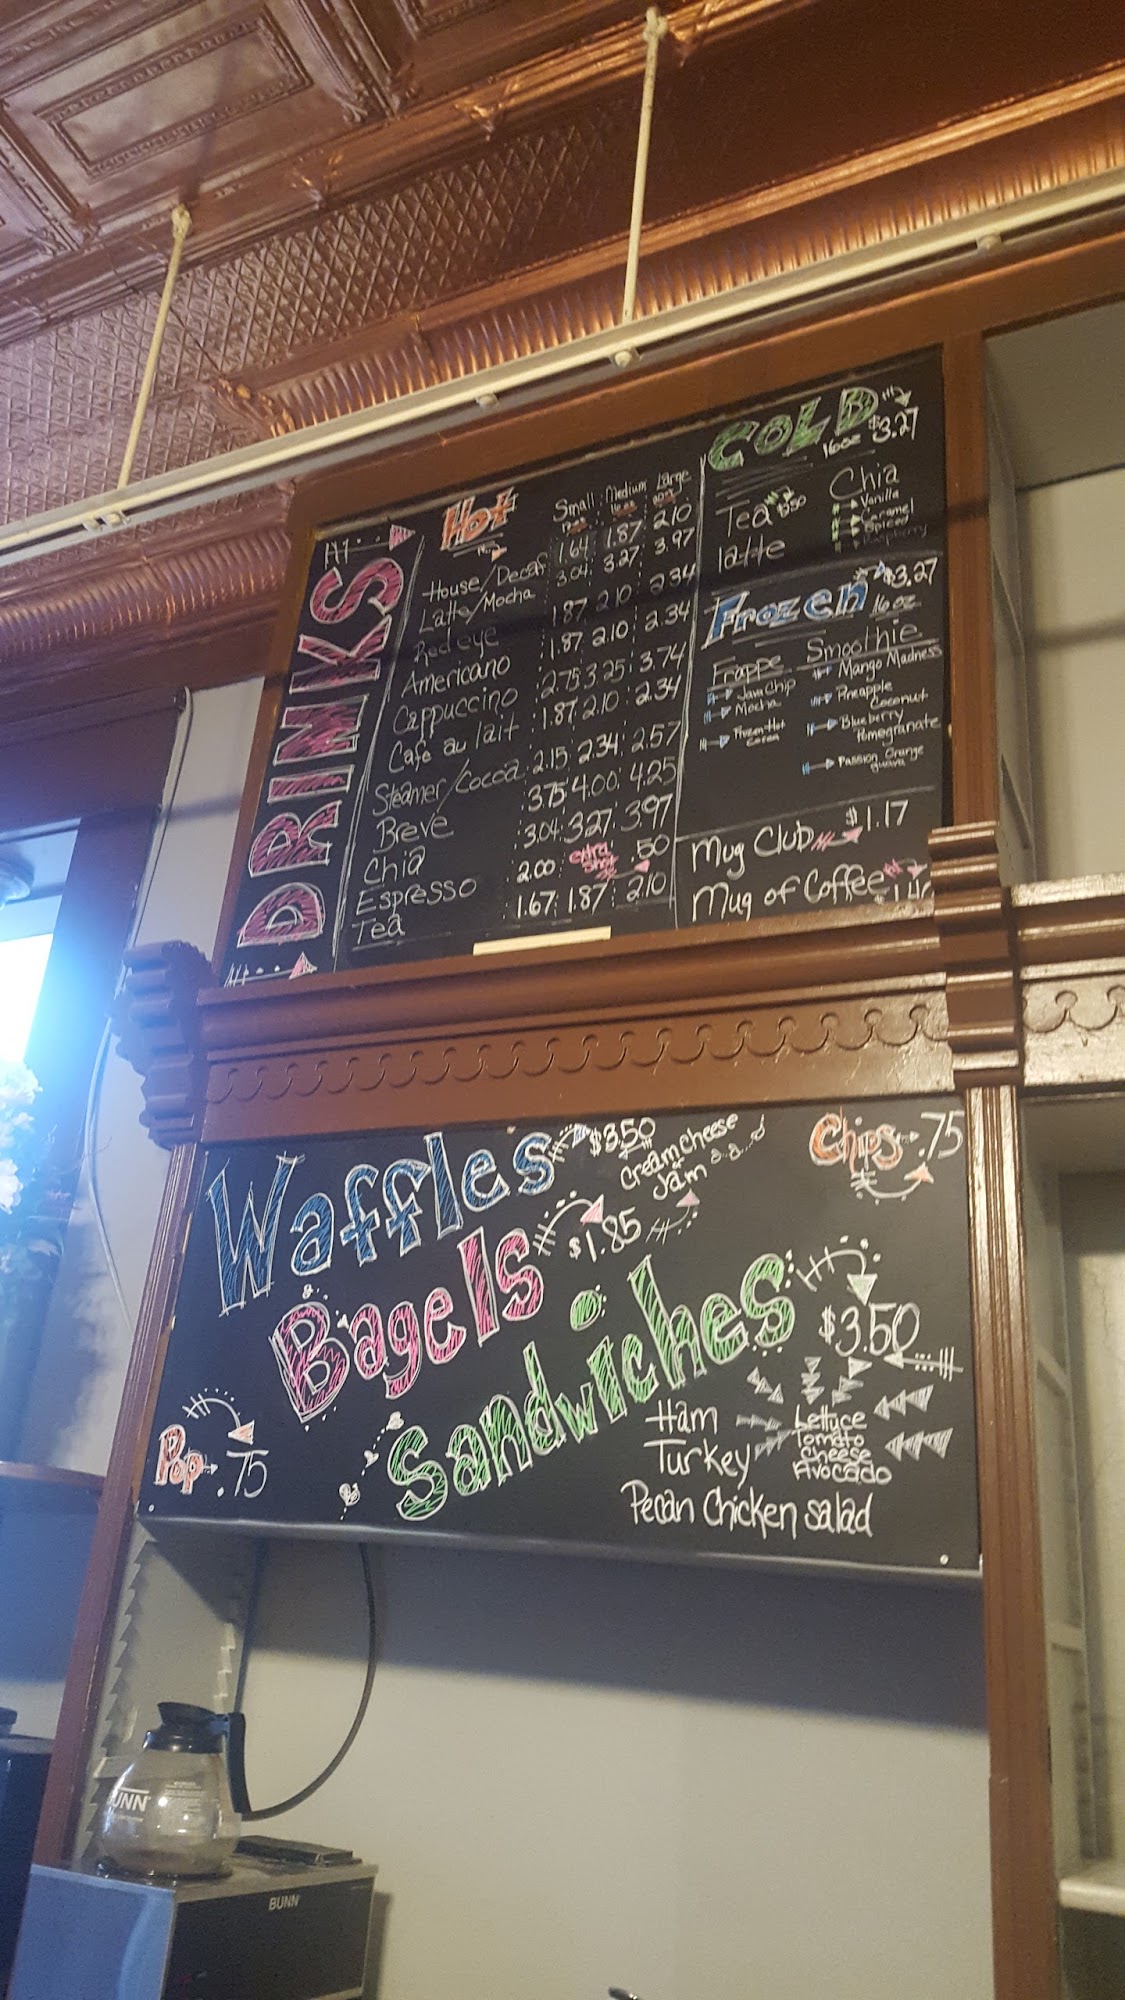 DRINKS
Hot
Small Medium Large
House/Decaf 1.64 1.87 2.10
Latte/Mocha 3.04 3.27 3.97
Redeye 1.87 2.10 2.34
Americano 1.87 2.10 2.34
Cappuccino 2.75 3.25 3.74
Cafe au lait 1.87 2.10 2.34
Steamer/Cocoa 2.15 2.34 2.57
Breve 3.75 4.00 4.25
Chia 3.04 3.27 3.97
Espresso 2.00 extra shot .50
Tea 1.67 1.87 2.10
COLD $3.27
16oz
Tea
latte
Chia
Vanilla
Caramel
Spiced
Frozen $3.27
16oz
Frappe
Java Chip
Mocha
Frozen Hot
Cocoa
Smoothie
Mango Madness
Pineapple
Coconut
Blueberry
Pomegranate
Passion Orange
guava
Mug Club $1.17
Mug of Coffee
Waffles $3.50
Cream Cheese
+
Jam
Chips .75
Bagels $1.85
Sandwiches
$3.50
Pop .75
Ham
Turkey
Lettuce
Tomato
Cheese
Avocado
Pecan Chicken salad
UNN
BUNN